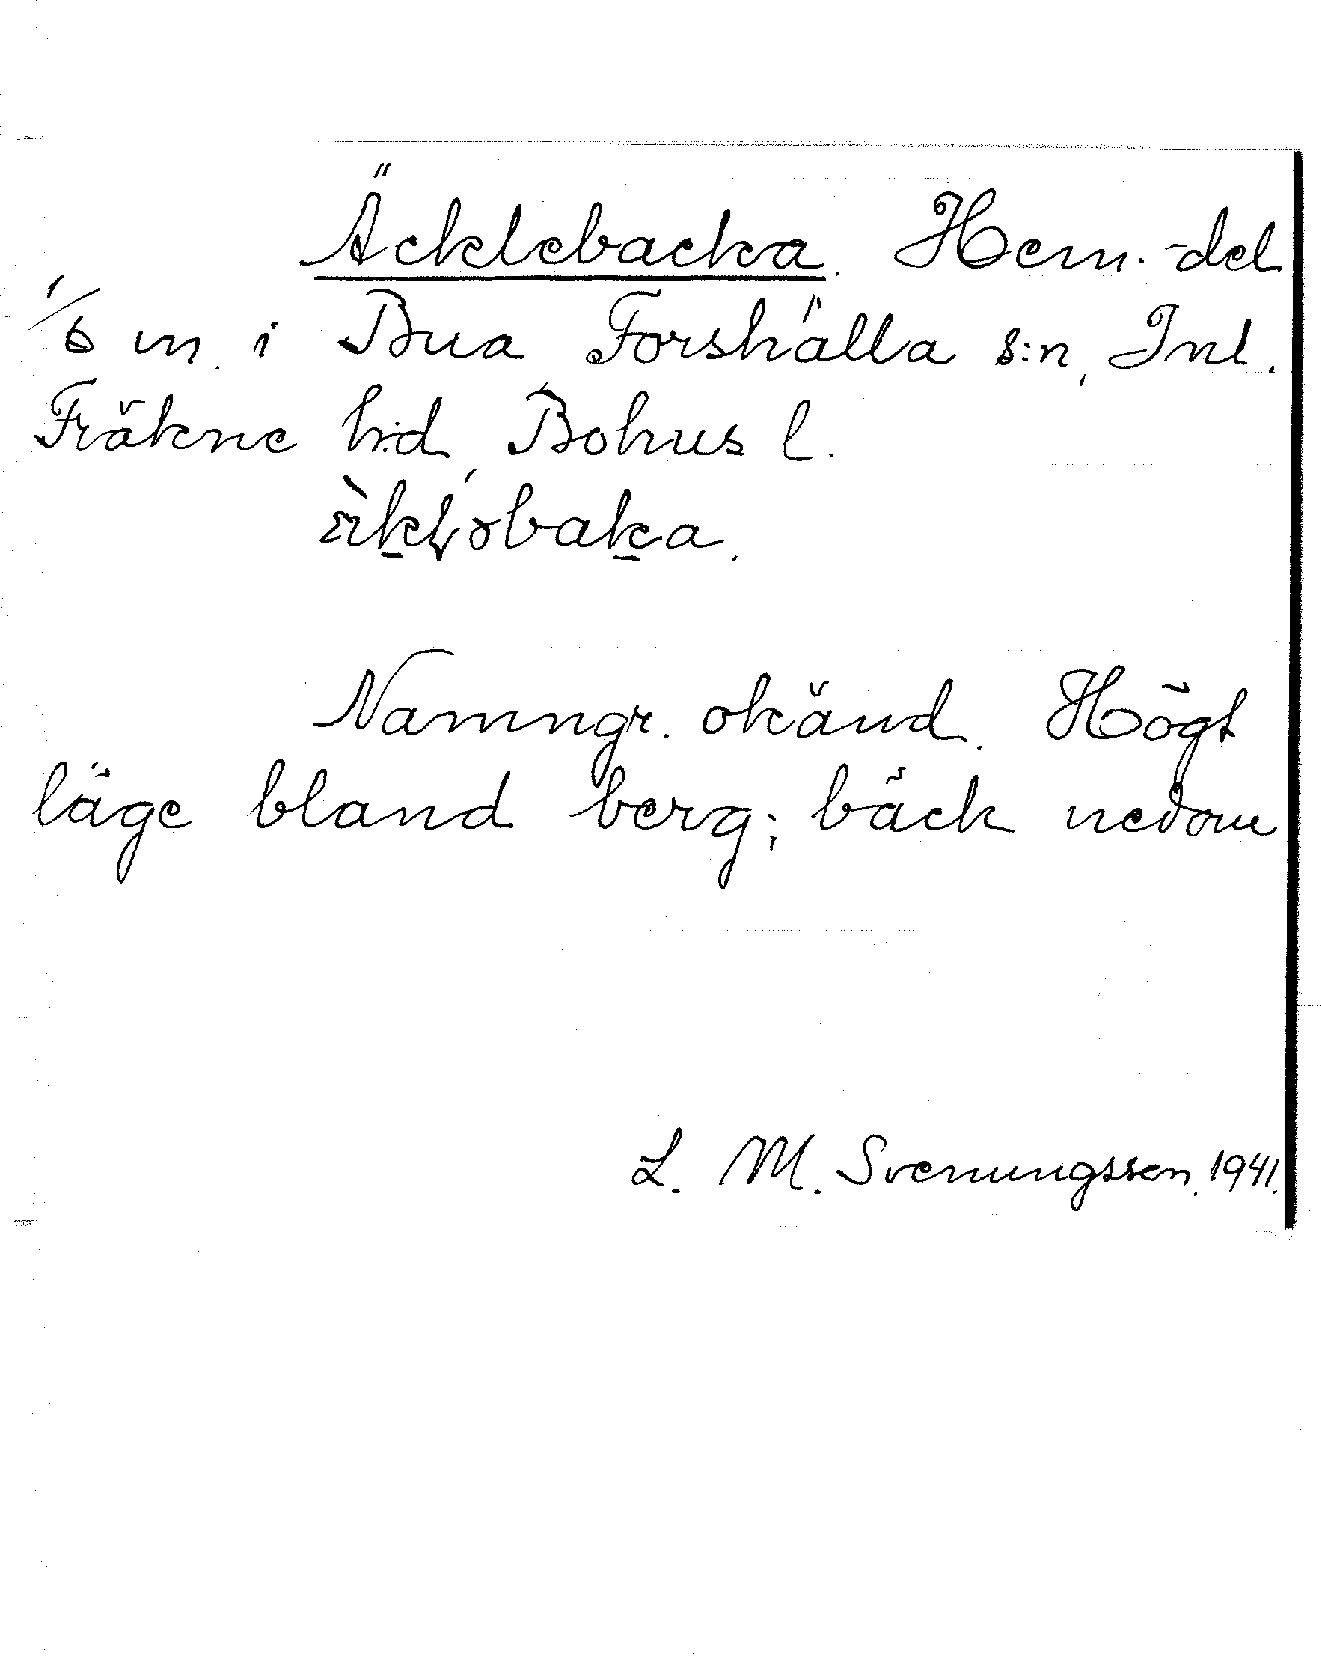 Äcklebacka. Hem.-del
1/6 m. i Bua Forshälla s:n, Inl.
Fräkne h:d, Bohus l.
Namngr. okänd. Högt
läge bland berg; bäck nedom
L. M. Svenungsson. 1941.